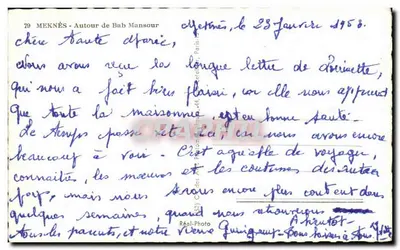 79 MEKNÈS - Autour de Bab Mansour
Meknès, le 23 Janvier 1953.
Chère Tante Marie,
Nous avons reçu la longue lettre de
qui nous a fait bien plaisir, car elle nous apprend
que toute la maisonnée est en bonne santé.
Le temps passe et ici, en nous avons encore
beaucoup à voir. C'est agréable de voyager,
connaître les mœurs et les coutumes des autres
pays, mais nous serons encore plus contents dans
quelques semaines, quand nous retrouverons
tous les parents, et notre vieux A bientôt
Bons baisers à tous
Réel-Photo